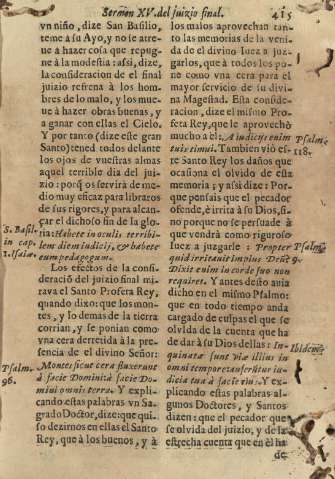 Sermon XV. del juizio final. 415
vn niño, dize San Basilio,
teme a su Ayo, y no se atre-
ue à hazer cosa que repug-
ne à la modestia: assi, dize,
la consideracion de el final
juizio refrena à los hom-
bres de lo malo, y los mue-
ue à hazer obras buenas, y
a ganar con ellas el Cielo.
Y por tanto (dize este gran
Santo) tened todos delante
los ojos de vuestras almas
aquel terrible dia del jui-
zio: porq̃ os servirà de me-
dio muy eficaz para libraros
de sus rigores, y para alcan-
çar el dichoso fin de la glo-
ria: Habete in oculis terribi-
lem diem iudicij, & habete
eum pedagogum.
S. Basil.
in cap.
1. Isaiæ.
Los efectos de la consi-
deraciõ del juizio final mi-
rava el Santo Profera Rey,
quando dixo: que los mon-
tes, y lo demas de la tierra
corrian, y se ponian como
vna cera derretida à la pre-
sencia de el divino Señor:
Montes sicut cera fluxerunt
à facie Domini: à facie Do-
mini omnis terra. Y expli-
cando estas palabras vn Sa-
grado Doctor, dize: que qui-
so dezirnos en ellas el Santo
Rey, que à los buenos, y à
Psalm.
96.
los malos aprovechan tan-
to las memorias de la veni-
da de el divino Iuez a juz-
garlos, que à todos los po-
ne como vna cera para el
mayor servicio de su divi-
na Magestad. Esta conside-
racion, dize el mismo Pro-
feta Rey, que le aprovechò
mucho a el: A iudicijs enim
tuis timui. Tambien viò es-
te Santo Rey los daños que
ocasiona el olvido de esta
memoria; y assi dize: Por-
que pensais que el pecador
ofende, è irrita à su Dios, si-
no porque no se persuade à
que vendrà como riguroso
Iuez a juzgarle: Propter
quid irritavit impius Deũ?
Dixit enim in corde suo non
requiret. Y antes desto avia
dicho en el mismo Psalmo:
que en todo tiempo anda
cargado de culpas el que se
olvida de la cuenta que ha
de dar à su Dios dellas: In-
quinatæ sunt viæ illius in
omni tempore: auferũtur iu-
dicia tua à facie eius. Y expli-
cando estas palabras al-
gunos Doctores, y Santos
dizen: que el pecador que
se olvida del juizio, y de la
estrecha cuenta que en èl ha
de
Psalm.
118.
Psalm.
9.
Ibidem.